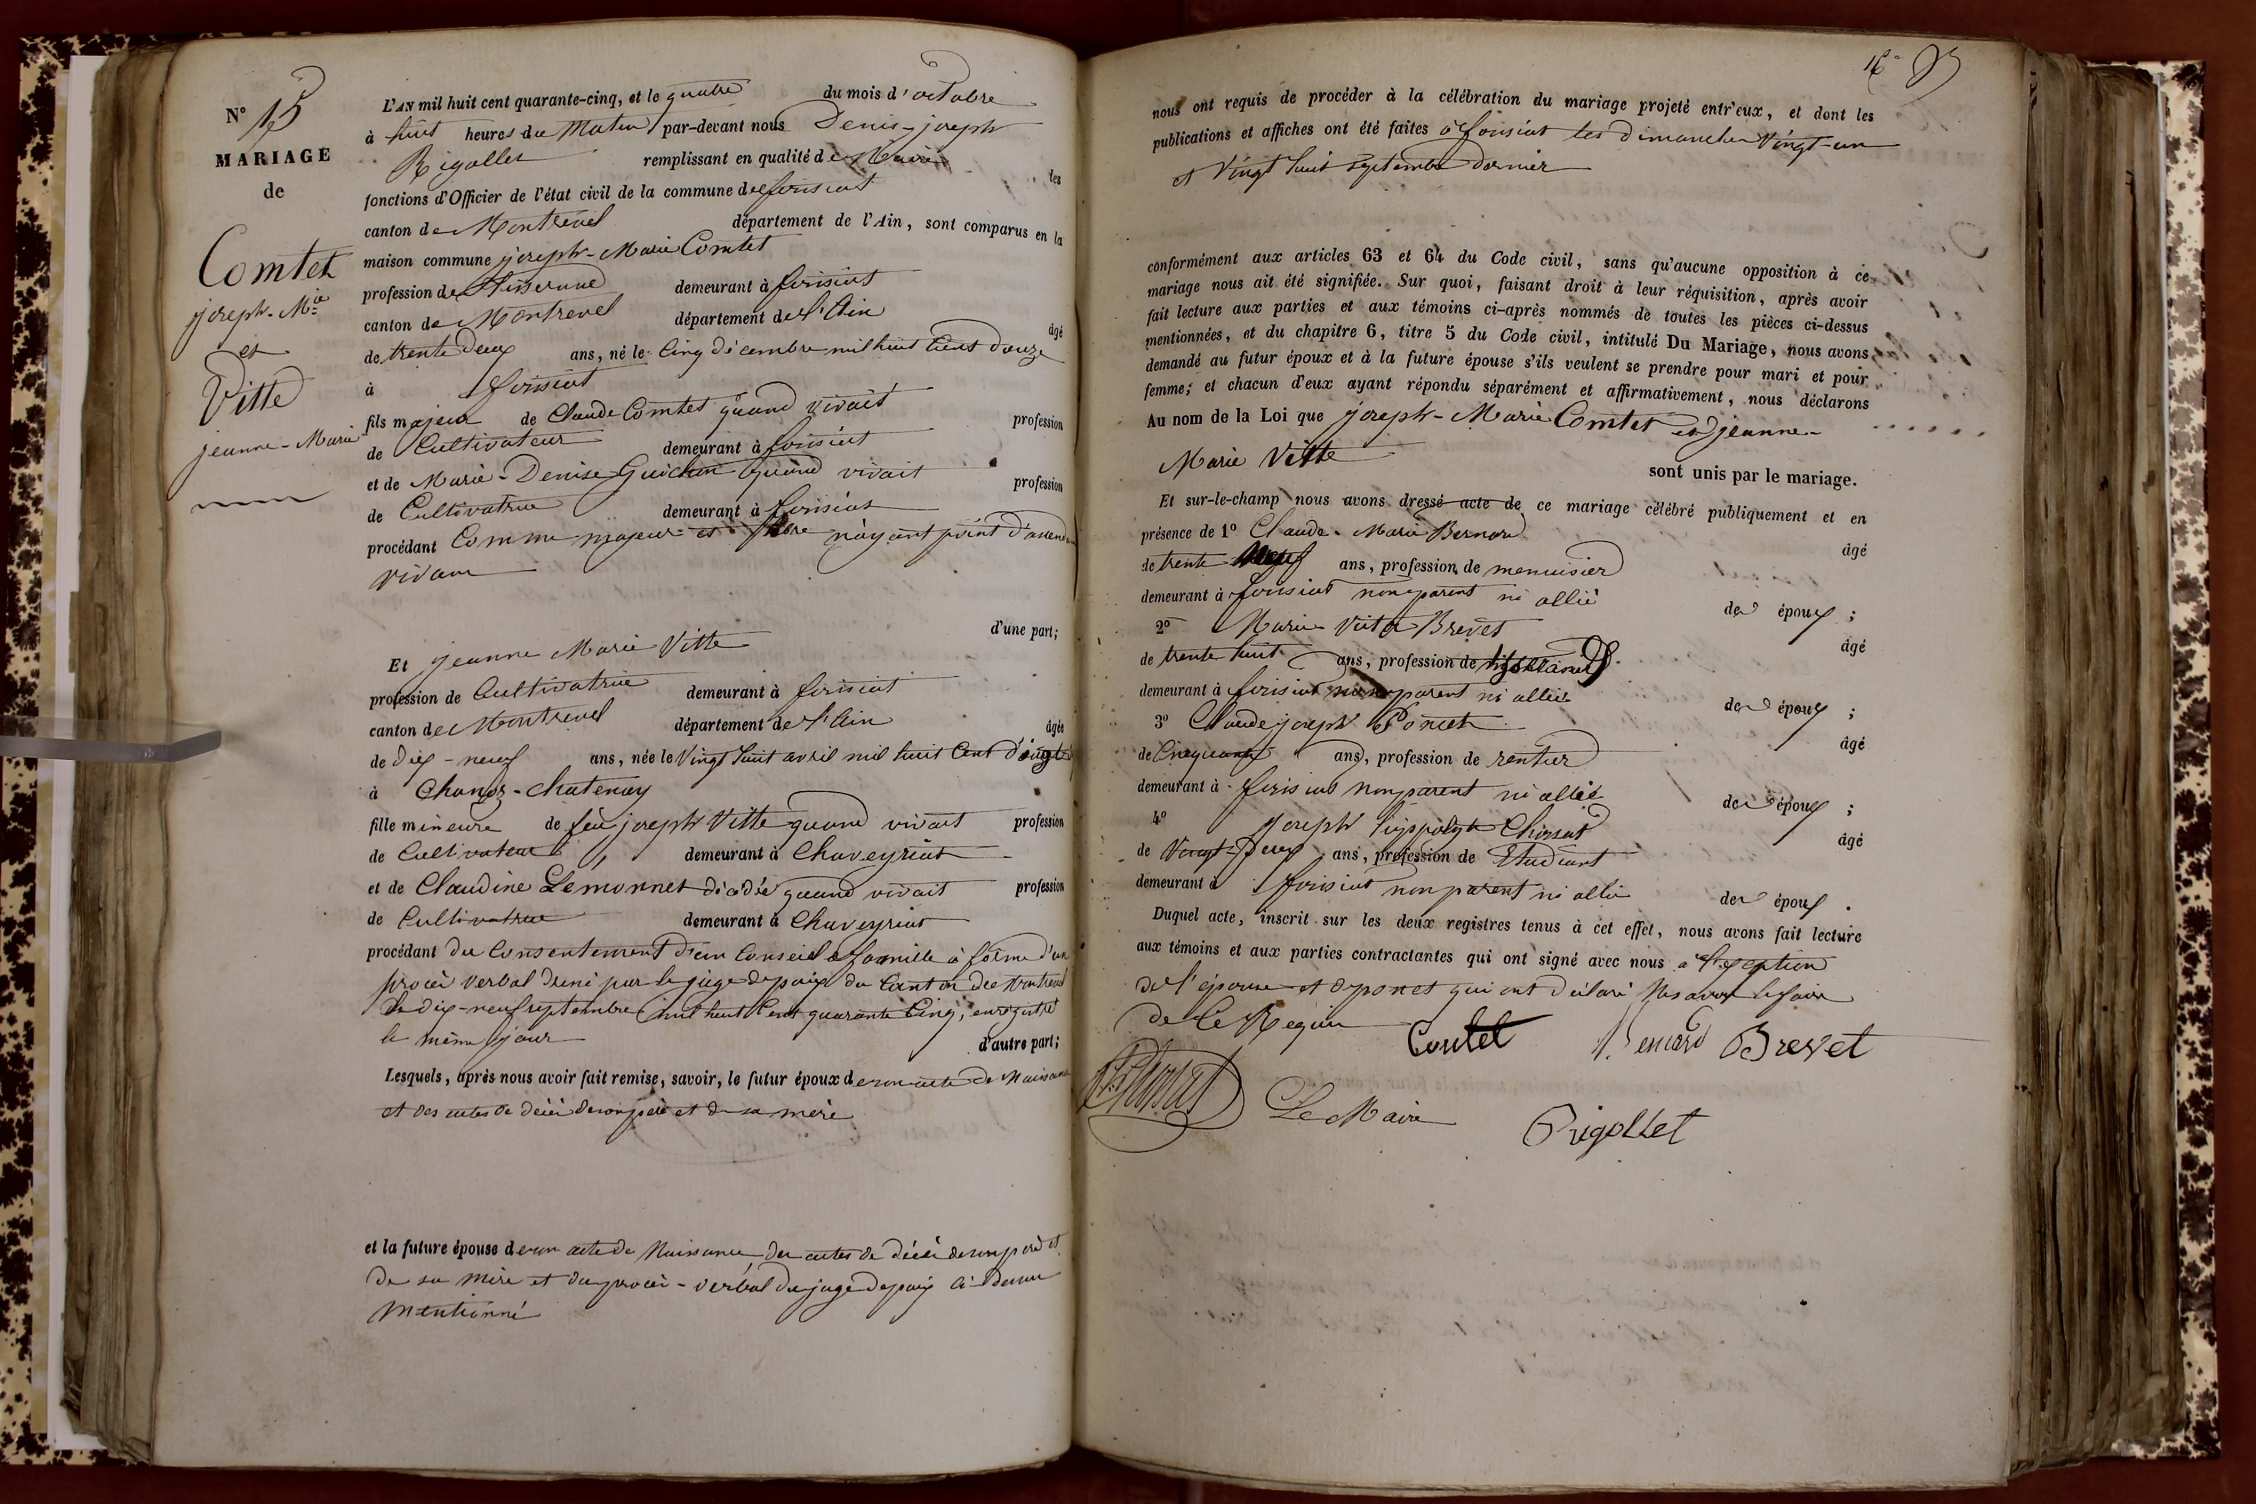 N° 15
MARIAGE
de
Comtet
joseph-Mie
et
Vitte
jeanne-Marie
L'AN mil huit cent quarante-cinq, et le quatre du mois d'octobre
à huit heures du Matin par-devant nous Denis-joseph
Rigollet remplissant en qualité de Maire les
fonctions d'Officier de l'état civil de la commune de foissiat
canton de Montrevel département de l'Ain, sont comparus en la
maison commune joseph-Marie Comtet
profession de Tisserand demeurant à foissiat
canton de Montrevel département de l'Ain âgé
de trente deux ans, né le Cinq décembre mil huit Cent douze
à foissiat
fils majeur de Claude Comtet quand vivait profession
de Cultivateur demeurant à foissiat
et de Marie-Denise Guichon quand vivait profession
de Cultivatrice demeurant à foissiat
procédant Comme majeur et libre n'ayant point d'ascendans
vivans
d'une part;
Et jeanne Marie Vitte
profession de Cultivatrice demeurant à foissiat
canton de Montrevel département de l'Ain âgée
de dix-neuf ans, née le Vingt huit avril mil huit Cent
à Chanoz-chatenay
fille mineure de feu joseph Vitte quand vivait profession
de Cultivateur demeurant à Chaveyriat
et de Claudine Lemonnet décédée quand vivait profession
de Cultivatrice demeurant à Chaveyriat
procédant du Consentement d'un Conseil de famille à forme d'un
procès verbal dressé par le juge de paix du Canton de Montrevel
le dix-neuf septembre mil huit Cent quarante Cinq, enregistré
le même jour d'autre part;
Lesquels, après nous avoir fait remise, savoir, le futur époux de son acte de Naissance
et des actes de décès de son père et de sa mère
et la future épouse de son acte de Naissance, des actes de décès de son père et
de sa mère et du procès-verbal du juge de paix Ci-dessus
Mentionné
nous ont requis de procéder à la célébration du mariage projeté entr'eux, et dont les
publications et affiches ont été faites à foissiat les dimanches Vingt-un
et Vingt huit septembre dernier
conformément aux articles 63 et 64 du Code civil, sans qu'aucune opposition à ce
mariage nous ait été signifiée. Sur quoi, faisant droit à leur réquisition, après avoir
fait lecture aux parties et aux témoins ci-après nommés de toutes les pièces ci-dessus
mentionnées, et du chapitre 6, titre 5 du Code civil, intitulé Du Mariage, nous avons
demandé au futur époux et à la future épouse s'ils veulent se prendre pour mari et pour
femme; et chacun d'eux ayant répondu séparément et affirmativement, nous déclarons
Au nom de la Loi que joseph-Marie Comtet et jeanne-
Marie Vitte
sont unis par le mariage.
Et sur-le-champ nous avons dressé acte de ce mariage célébré publiquement et en
présence de 1° Claude-Marie Bernard âgé
de trente neuf ans, profession de menuisier
demeurant à foissiat non parent ni allié des époux;
2° Marie Brevet âgé
de trente huit ans, profession de
demeurant à foissiat non parent ni allié des époux;
3° Claude joseph Poncet âgé
de Cinquante ans, profession de rentier
demeurant à foissiat non parent ni allié des époux;
4° joseph hyppolyte Chossat âgé
de Vingt-Deux ans, profession de Etudiant
demeurant à foissiat non parent ni allié des époux.
Duquel acte, inscrit sur les deux registres tenus à cet effet, nous avons fait lecture
aux témoins et aux parties contractantes qui ont signé avec nous à l'exception
de l'épouse et de poncet qui ont déclaré ne savoir le faire
de Ce Requis
Contet Bernard Brevet
Chossat
Le Maire
Rigollet